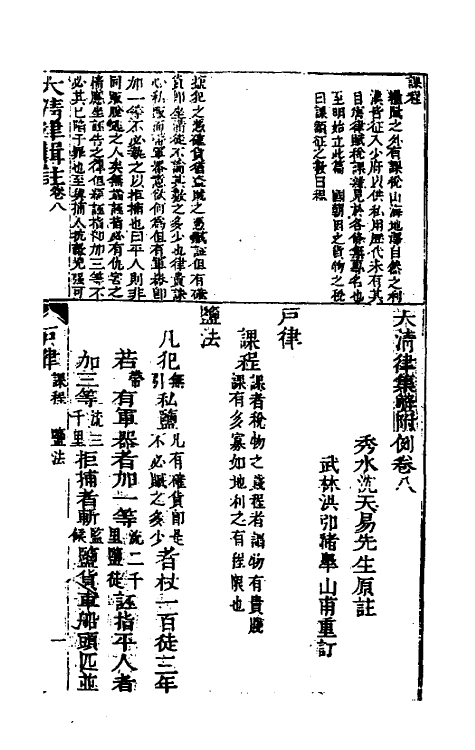 大清律集解附例卷八
秀水沈天易先生原註
武林洪弘緒皋山甫重訂
戶律
課程課者稅物之錢程者謂物有貴賤
課有多寡如地利之有程限也
鹽法
凡犯無引私鹽凡有確貨即是不必贓之多少者杖一百徒三年
若帶有軍器者加一等流二千里鹽徒誣指平人者
加三等流三千里拒捕者斬監候鹽貨車船頭匹並
課程
糧賦之外有課稅山海地澤自然之利
漢皆征入少府以供私用歷代未有其
目唐律賦稅課雜見於各條無專名也
至明始立此篇 國朝因之貨物之稅
曰課額征之數曰程
鹽犯之憑確貨者立贓之憑贓証但有確
貨即坐諸徒不論其數之多少也律貴誅
心私販而帶軍器意欲何為但有軍器即
加一等不必執之以拒捕也曰平人則非
同販脫逃之人矣無端誣指必有仇害之
情應坐誣告之罪但鹽誣指抑加三等不
必其已陷于罪也至拒捕人既嚴兇强可
大清律輯註卷八
戶律 課程 鹽法 一